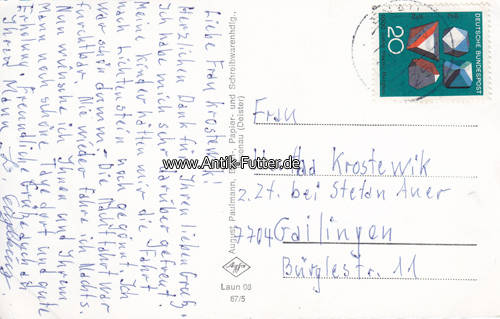 Liebe Frau Krostewik!
Herzlichen Dank für Ihren lieben Gruß.
Ich habe mich sehr darüber gefreut.
Meine Kinder hätten mir die Fahrt
nach Lichtenstein noch gegönnt. Ich
war schön dumm. Die Nachtfahrt war
furchtbar. Nie wieder fahre ich Nachts.
Nun wünsche ich Ihnen und Ihrem
Mann noch schöne Tage dort und gute
Erholung. Freundliche Grüße auch
Ihrem Mann
August Paulmann, Papier- und Schreibwarenhdlg.,
(Deister)
DEUTSCHE BUNDESPOST
20
Frau
Krostewik
z. Zt. bei Stefan Auer
7704 Gailingen
Bürglestr. 11
Agfa
Laun 08
67/5
www.Antik-Futter.de